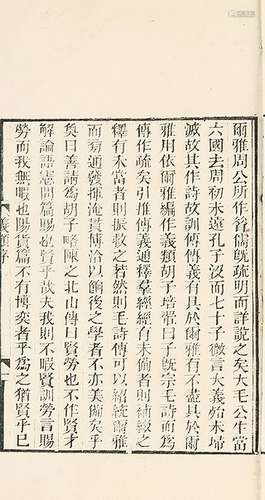 爾雅周公所作耆儒既疏明而詳說之矣大毛公生當
六國去周初未遠孔子沒而七十子微言大義殆未埽
滅故其作詩故訓傳傳義有具於爾雅有不盡具於爾
雅用依爾雅編作義類胡子培翬曰子既宗毛詩而爲
傳作疏矣引推傳義通釋羣經經有未僃者則補綴之
釋有未當者則振救之若然則毛詩傳可以紹統爾雅
而㫄通發揮淹貫博洽以餉後之學者不亦美備矣乎
奐曰善請爲胡子略陳之北山傳曰賢勞也不作賢才
解論語憲問篇賜也賢乎哉夫我則不暇賢訓勞言賜
勞而我無暇也陽貨篇不有博奕者乎爲之猶賢乎已
義類序
一